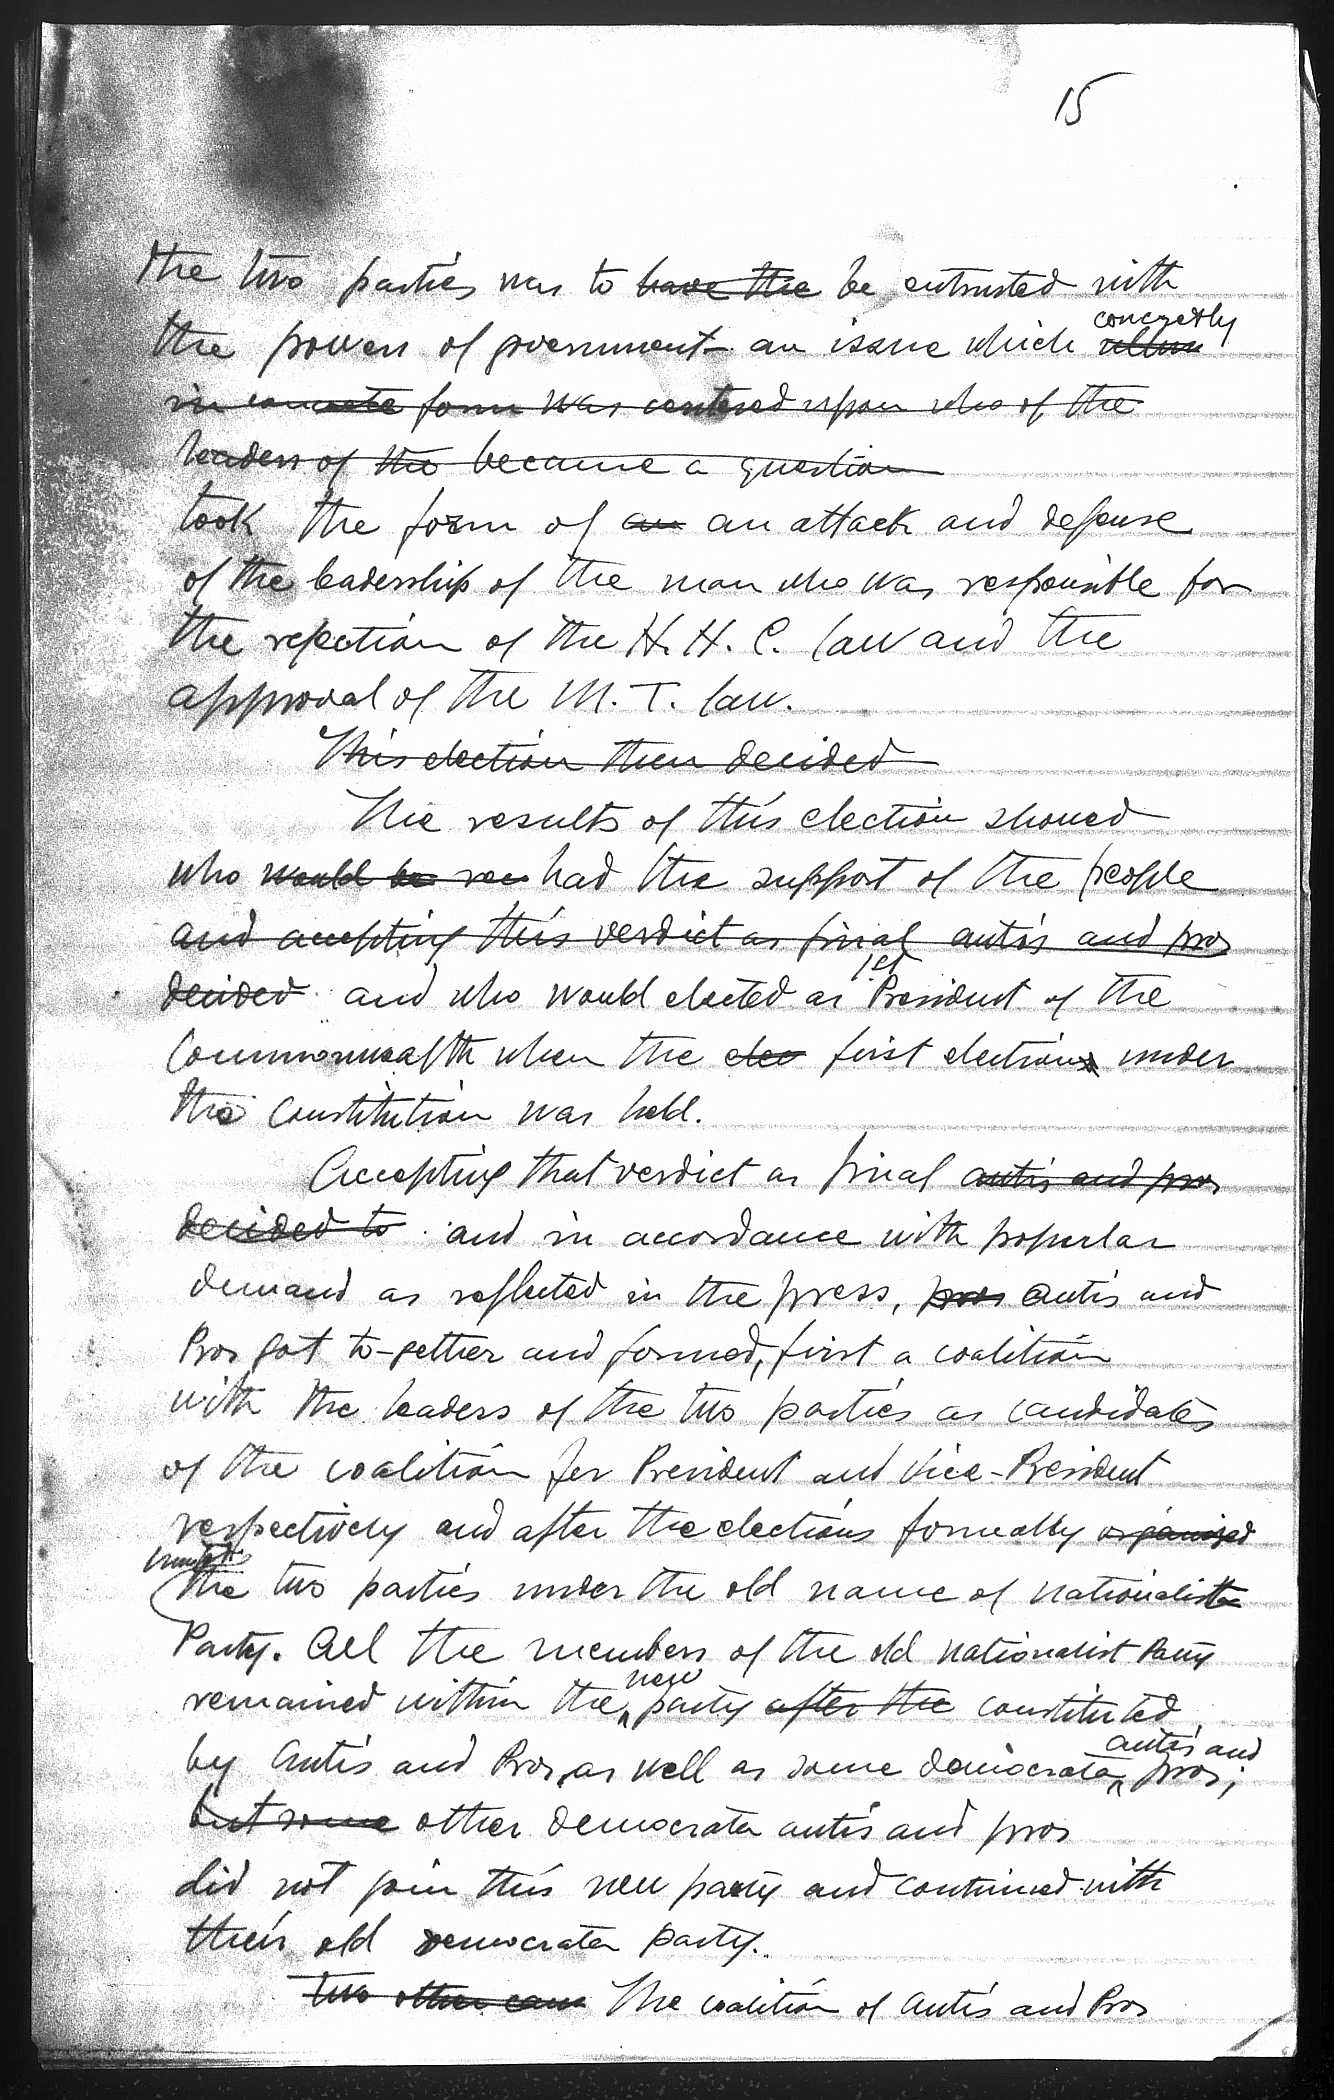 15
the two parties was to have the be entrusted with
the powers of government - an issue which concretly
in concrete form was centered upon who of the
leaders of the became a question
took the form of an an attack and defense
of the leadership of the man who was responsible for
the rejection of the H. H. C. law and the
approval of the M. T. law.
This election then decided
The results of this election showed
who would be had the support of the people
and accepting this verdict as final antis and pros
decided and who would elected as 1st President of the
Commonwealth when the elec first election under
the Constitution was held.
Accepting that verdict as final antis and pros
decided to and in accordance with popular
demand as reflected in the press, pros Antis and
Pros got to-gether and formed, first a coalition
with the leaders of the two parties as candidates
of the coalition for President and Vice-President
respectively and after the elections formally organized
united
the two parties under the old name of nationalista
Party. All the members of the old nationalist Party
remained within the new party after the constituted
by Antis and Pros, as well as some democrata antis and pros;
but some other democrata antis and pros
did not join this new party and continued with
their old democrata party.
two other cam The coalition of Antis and Pros